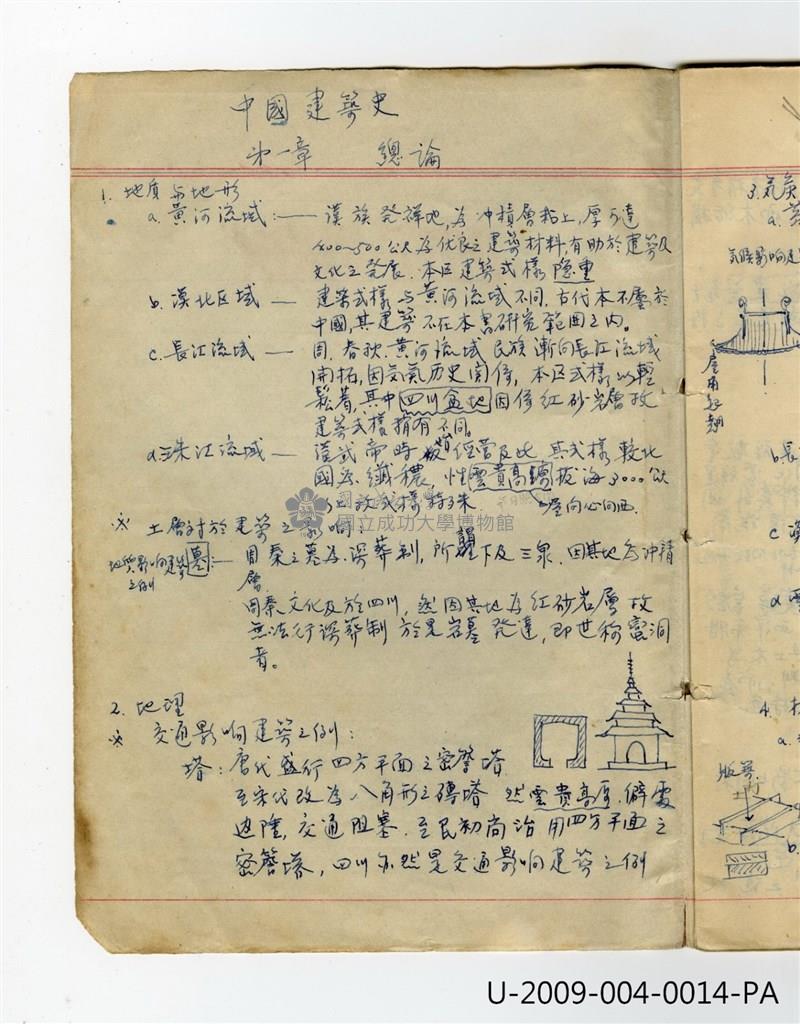 中國建築史
第一章 總論
1. 地质与地形
a. 黃河流域:— 漢族発祥地,為冲積層粘土,厚可達
400~500公尺為优良之建築材料,有助於建築及
文化之発展. 本区建築式樣隐重
b. 漠北区域 — 建築式樣与黃河流域不同,古代本不屬於
中國,其建築不在本書研究範囲之内。
c. 長江流域 — 周.春秋.黃河流域民族漸向長江流域
開拓,因气氣历史関係,本区式樣以輕
鬆著,其中四川盆地因係红砂岩層故
建築式樣稍有不同。
d. 珠江流域 — 漢武帝時 経营及此 其式樣較北
國為纖穠, 雲貴高 拔海3000公尺
故式樣特殊
屋向心向西.
※ 土層対於建築之影响:
地質影响建築
之例
墓:— 周秦之墓為深葬制,所 下及三泉.因其地為冲積
層
周秦文化及於四川,然因其地為红砂岩層故
無法行深葬制 於是岩墓発達,即世称蛮洞
者。
2. 地理
※ 交通影响建築之例:
塔:唐代盛行四方平面之密簷塔
至宋代改為八角形之磚塔 然雲貴高原.僻處
边陲,交通阻塞.至民初尚沿用四方平面之
密簷塔,四川亦然是交通影响建築之例
3. 気
a.
気候影响建
屋角起翹
b. 長
c
d 雲
4. 材
a.
版築
b.
國立成功大學博物館
U-2009-004-0014-PA